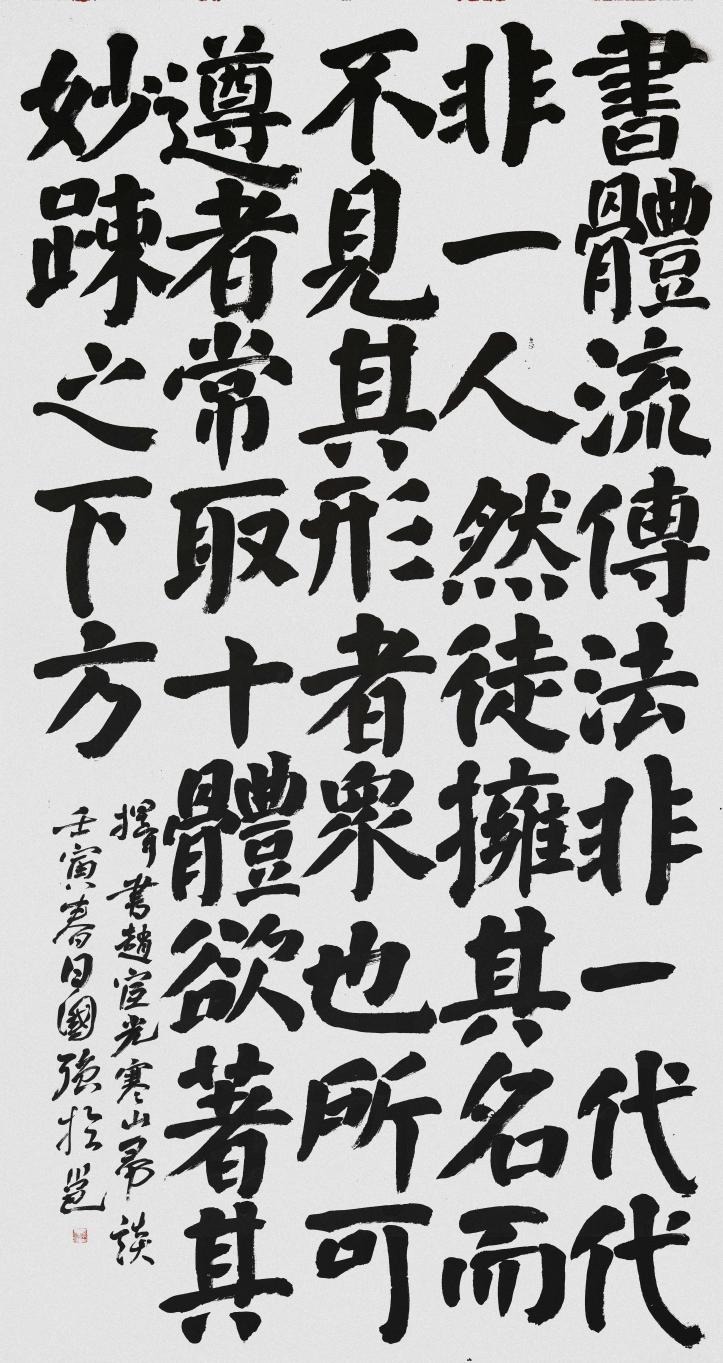 書體流傳法非一代代
非一人然徒擁其名而
不見其形者眾也所可
遵者常取十體欲著其
妙踈之下方
擇書趙宧光寒山帚談
壬寅春日國強於邕